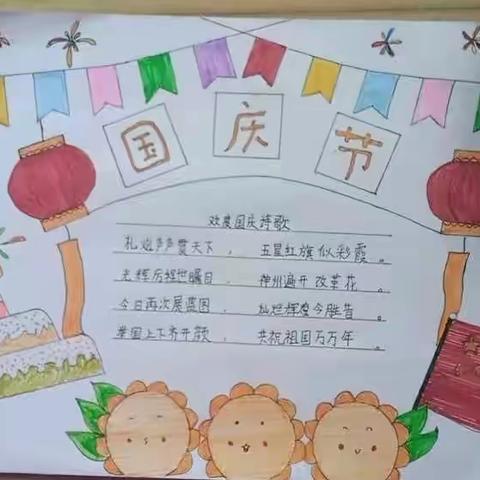 国庆节
欢度国庆诗歌
礼炮声声贯天下，五星红旗似彩霞。
光辉历程世瞩目，神州遍开改革花。
今日再次展蓝图，灿烂辉煌今胜昔
举国上下齐开颜，共祝祖国万万年。